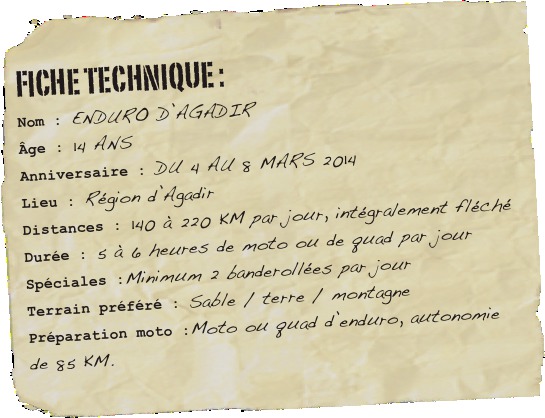 FICHE TECHNIQUE :
Nom : ENDURO D'AGADIR
Âge : 14 ANS
Anniversaire : DU 4 AU 8 MARS 2014
Lieu : Région d'Agadir
Distances : 140 à 220 KM par jour, intégralement fléché
Durée : 5 à 6 heures de moto ou de quad par jour
Spéciales :Minimum 2 banderollées par jour
Terrain préféré : Sable / terre / montagne
Préparation moto :Moto ou quad d'enduro, autonomie
de 85 KM.